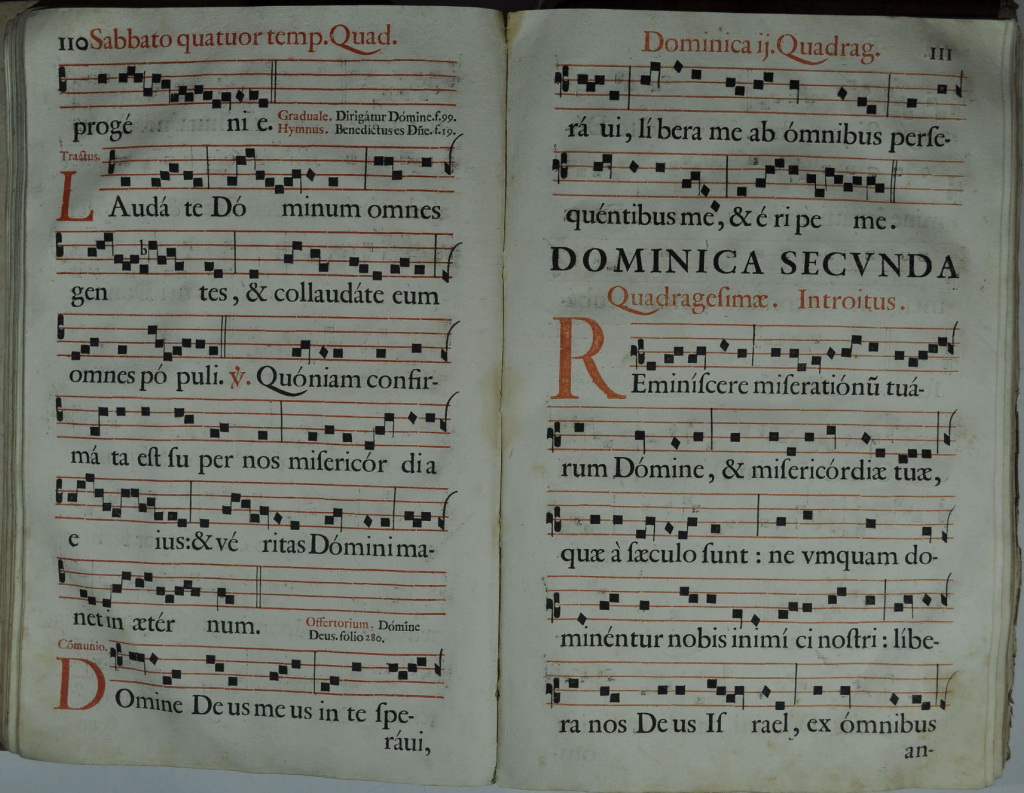 110 Sabbato quatuor temp. Quad.
progé ni e. Graduale. Dirigátur Dómine. f. 99.
Hymnus. Benedictus es Dñe. f. 19.
Tractus.
LAudá te Dó minum omnes
gen tes, & collaudáte eum
omnes pó puli. ℣. Quóniam confir-
má ta eſt ſu per nos miſericór di a
e ius: & vé ritas Dómini ma-
net in ætér num. Offertorium. Dómine
Deus. folio 280.
Cómunio.
DOmine De us me us in te ſpe-
ráui,
Dominica ij. Quadrag. 111
rá ui, lí bera me ab ómnibus perſe-
quéntibus me, & é ri pe me.
DOMINICA SECVNDA
Quadrageſimæ. Introitus.
REminíſcere miſeratiónũ tuá-
rum Dómine, & miſericórdiæ tuæ,
quæ à ſæculo ſunt : ne vmquam do-
minéntur nobis inimí ci noſtri : líbe-
ra nos De us Iſ rael, ex ómnibus
an-